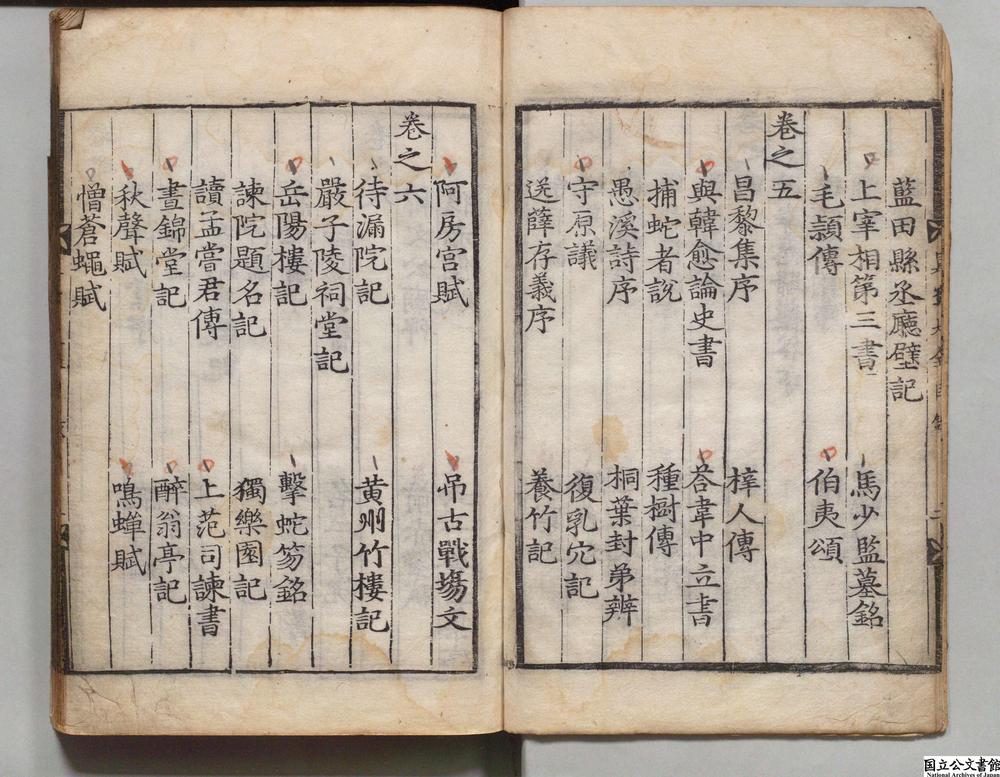 藍田縣丞廳壁記
上宰相第三書 馬少監墓銘
毛頴傳 伯夷頌
卷之五
昌黎集序 梓人傳
與韓愈論史書 荅韋中立書
捕蛇者說 種樹傳
愚溪詩序 桐葉封弟辨
守原議 復乳穴記
送薛存義序 養竹記
阿房宮賦 吊古戰塲文
卷之六
待漏院記 黃州竹樓記
嚴子陵祠堂記
岳陽樓記 擊蛇笏銘
諫院題名記 獨樂園記
讀孟嘗君傳 上范司諫書
晝錦堂記 醉翁亭記
秋聲賦 鳴蟬賦
憎蒼蠅賦
国立公文書館
National Archives of Japan